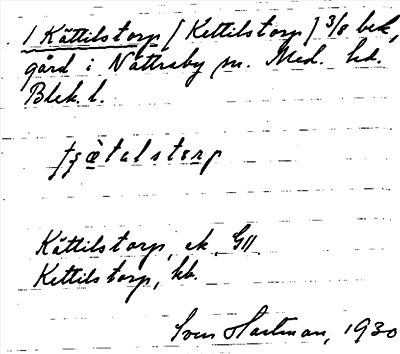 1 Kättilstorp [Kettilstorp] 3/8 bek,
gård i Nättraby sn. Med. hd.
Blek. l.
Kättilstorp, ek. GII.
Kettilstorp, kb.
Sven Hartman, 1930